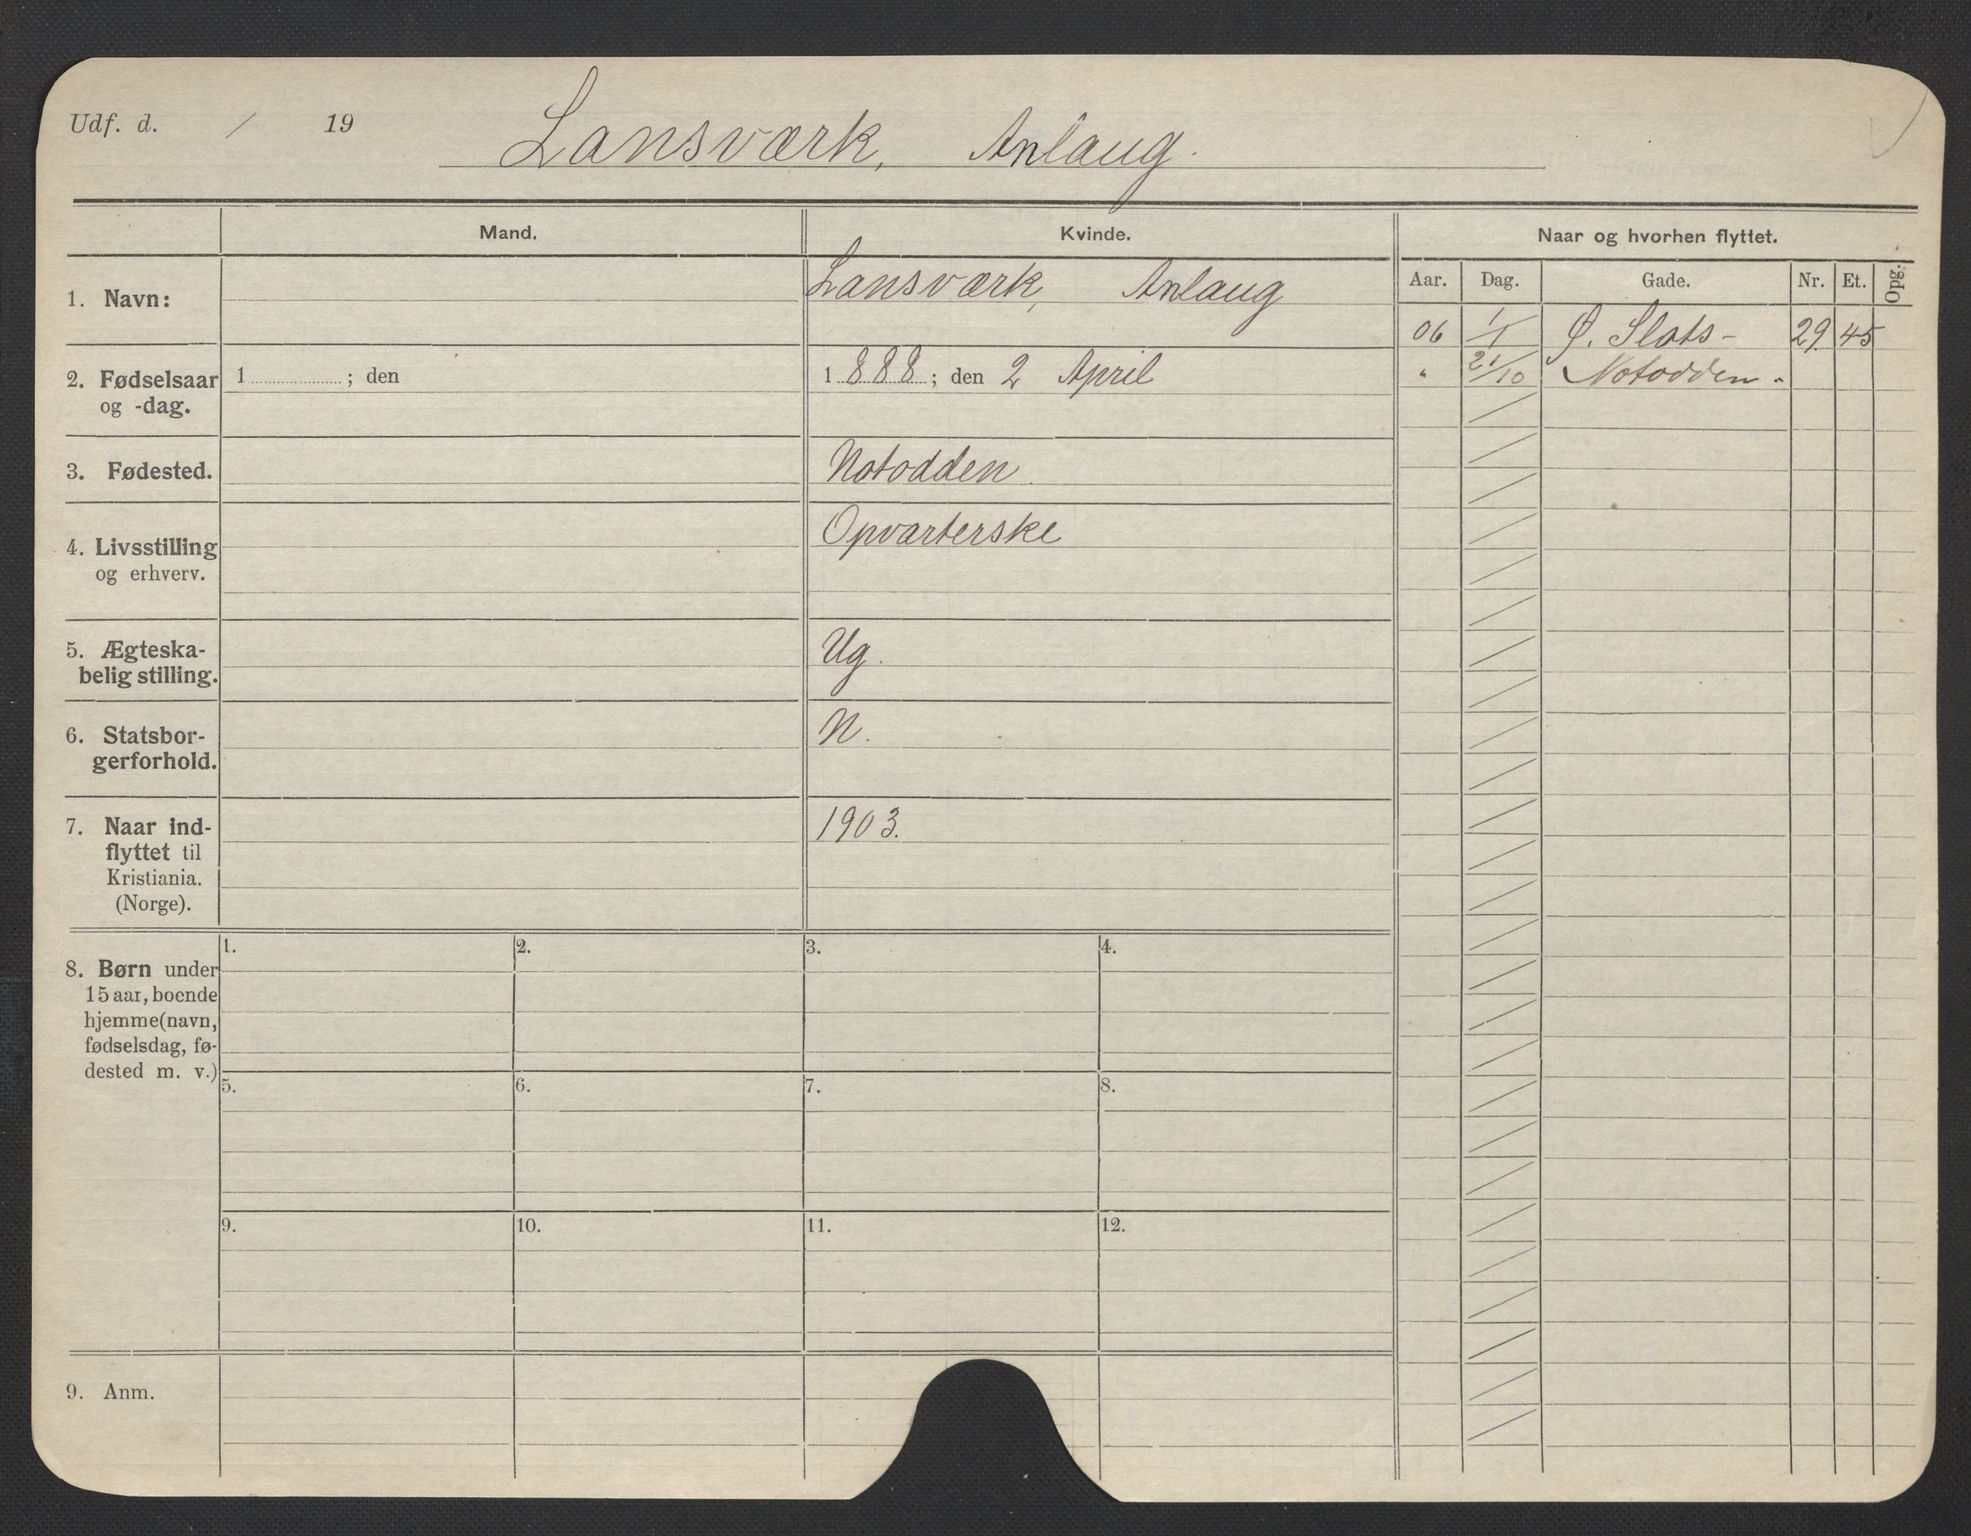 Udf. d. / 19
Lansværk, Anlaug.
Mand.
Kvinde.
Naar og hvorhen flyttet.
Aar. Dag. Gade. Nr. Et. Opg.
1. Navn:
Lansværk, Anlaug
06 1/1 Ø. Slots- 29. 45
" 21/10 Notodden.
2. Fødselsaar
og -dag.
1 ; den
1 888 ; den 2 April
3. Fødested.
Notodden.
4. Livsstilling
og erhverv.
Opvarterske
5. Ægteska-
belig stilling.
Ug.
6. Statsbor-
gerforhold.
N.
7. Naar ind-
flyttet til
Kristiania.
(Norge).
1903.
8. Børn under
15 aar, boende
hjemme (navn,
fødselsdag, fø-
dested m. v.)
1. 2. 3. 4.
5. 6. 7. 8.
9. 10. 11. 12.
9. Anm.